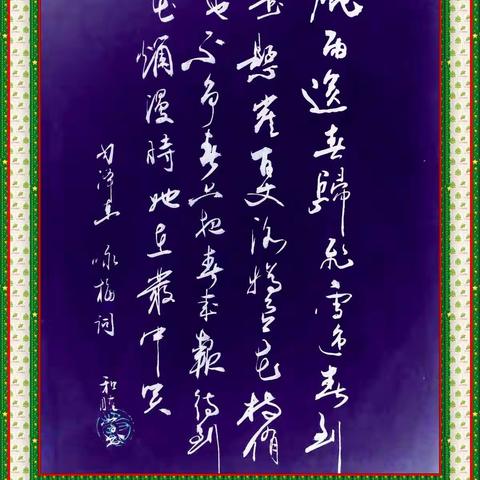 風雨送春歸飛雪迎春到
是懸崖百丈冰猶有花枝俏
也不争春只把春来報待到
花爛漫時她在叢中笑
毛泽东 咏梅詞